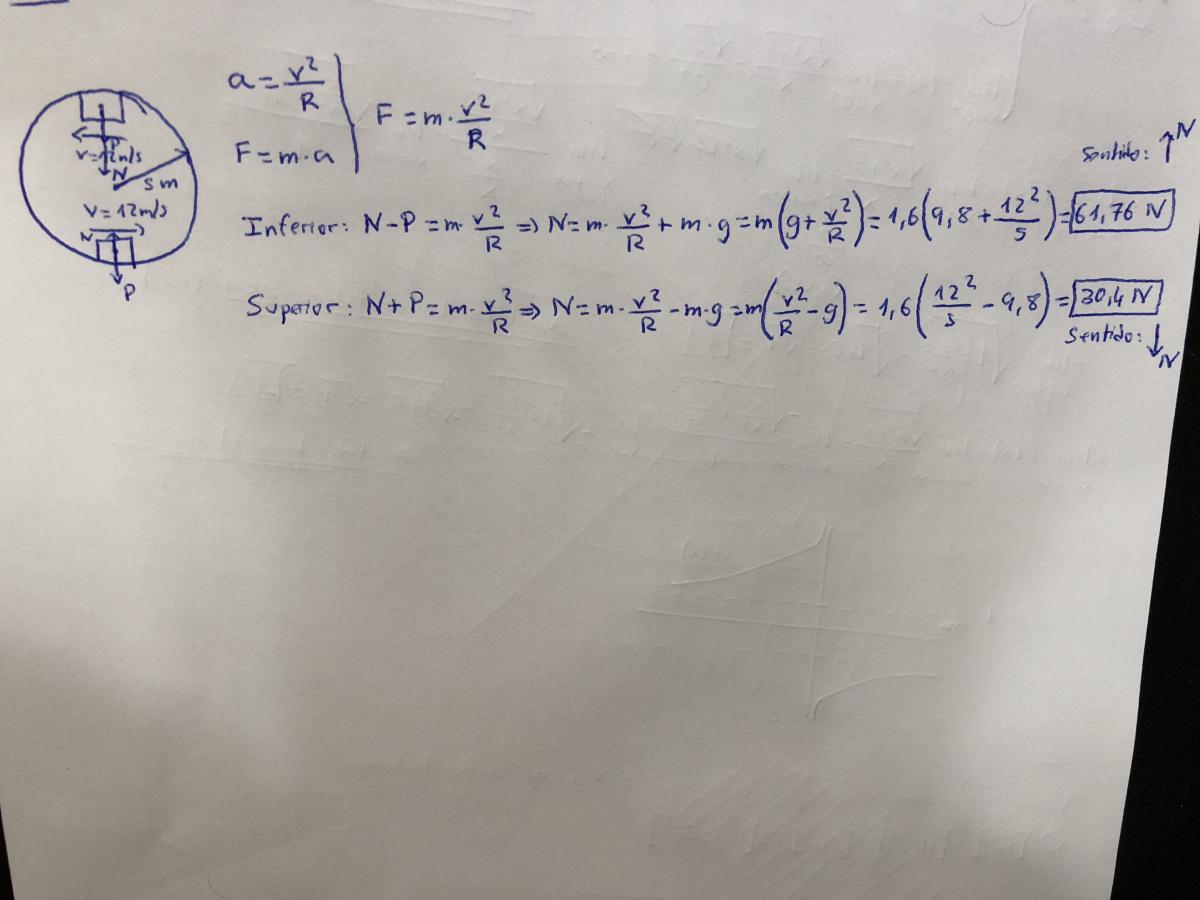 a = v²/R
F = m·a
F = m · v²/R
P
v=12m/s
N
5 m
v=12m/s
N
P
Sentido: ↑N
Inferior: N-P = m· v²/R ⇒ N = m· v²/R + m·g = m(g + v²/R) = 1,6(9,8 + 12²/5) = 61,76 N
Superior: N+P = m· v²/R ⇒ N = m· v²/R - m·g = m(v²/R - g) = 1,6(12²/5 - 9,8) = 30,4 N
Sentido: ↓N